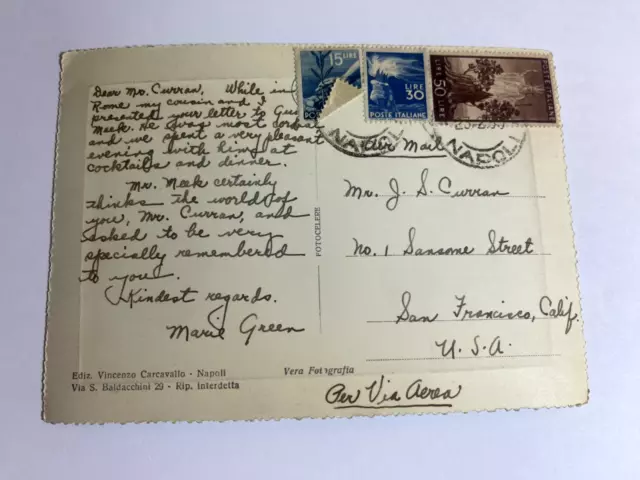 Dear Mr. Curran, While in
Rome my cousin and I
presented your letter to Gus
Meek. He was most cordial
and we spent a very pleasant
evening with him at
cocktails and dinner.
Mr. Meek certainly
thinks the world of
you, Mr. Curran, and
asked to be very
specially remembered
to you.
Kindest regards.
Marie Green
Ediz. Vincenzo Carcavallo - Napoli
Via S. Baldacchini 29 - Rip. interdetta
Vera Fotografia
FOTOCELERE
15 LIRE
LIRE
30
POSTE ITALIANE
LIRE 50
POSTE ITALIANE
NAPOLI
NAPOLI
Air Mail
Mr. J. S. Curran
No. 1 Sansome Street
San Francisco, Calif.
U.S.A.
Per Via Aerea